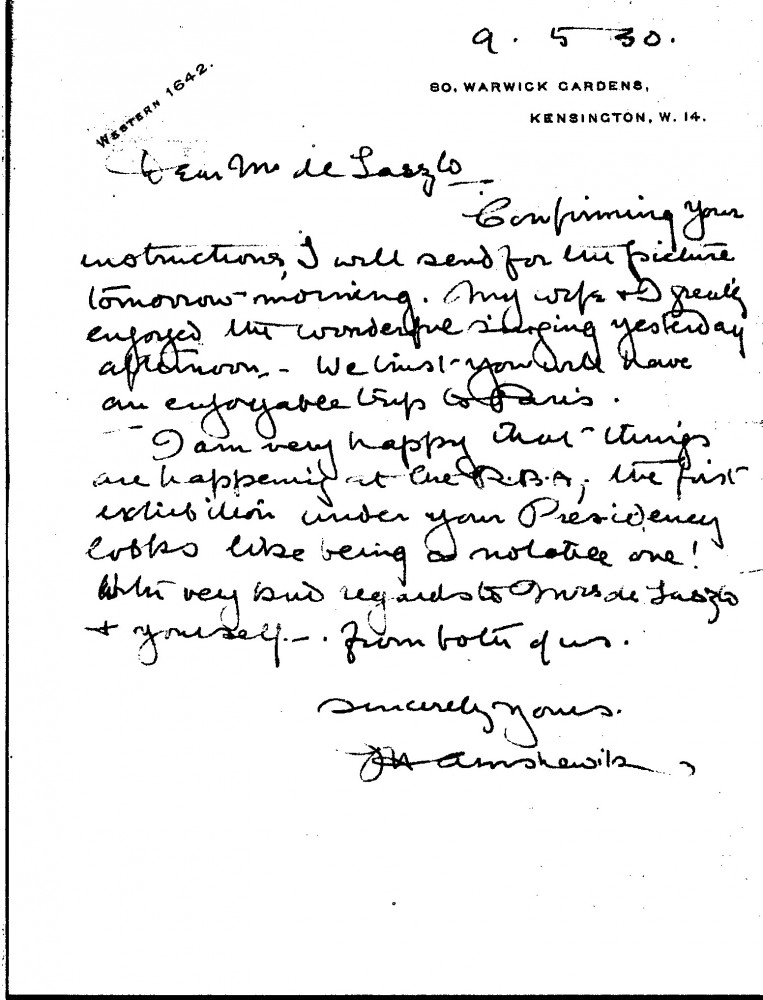 9. 5 30.
WESTERN 1642.
80, WARWICK GARDENS,
KENSINGTON, W. 14.
Dear Mr de Laszlo
Confirming your
instructions, I will send for the picture
tomorrow morning. My wife & I greatly
enjoyed the wonderful singing yesterday
afternoon. - We trust you will have
an enjoyable trip to Paris.
I am very happy that things
are happening at the R.B.A; the first
exhibition under your Presidency
looks like being a notable one!
With very kind regards to Mrs de Laszlo
& yourself -. from both of us.
Sincerely yours.
JH Amshewitz